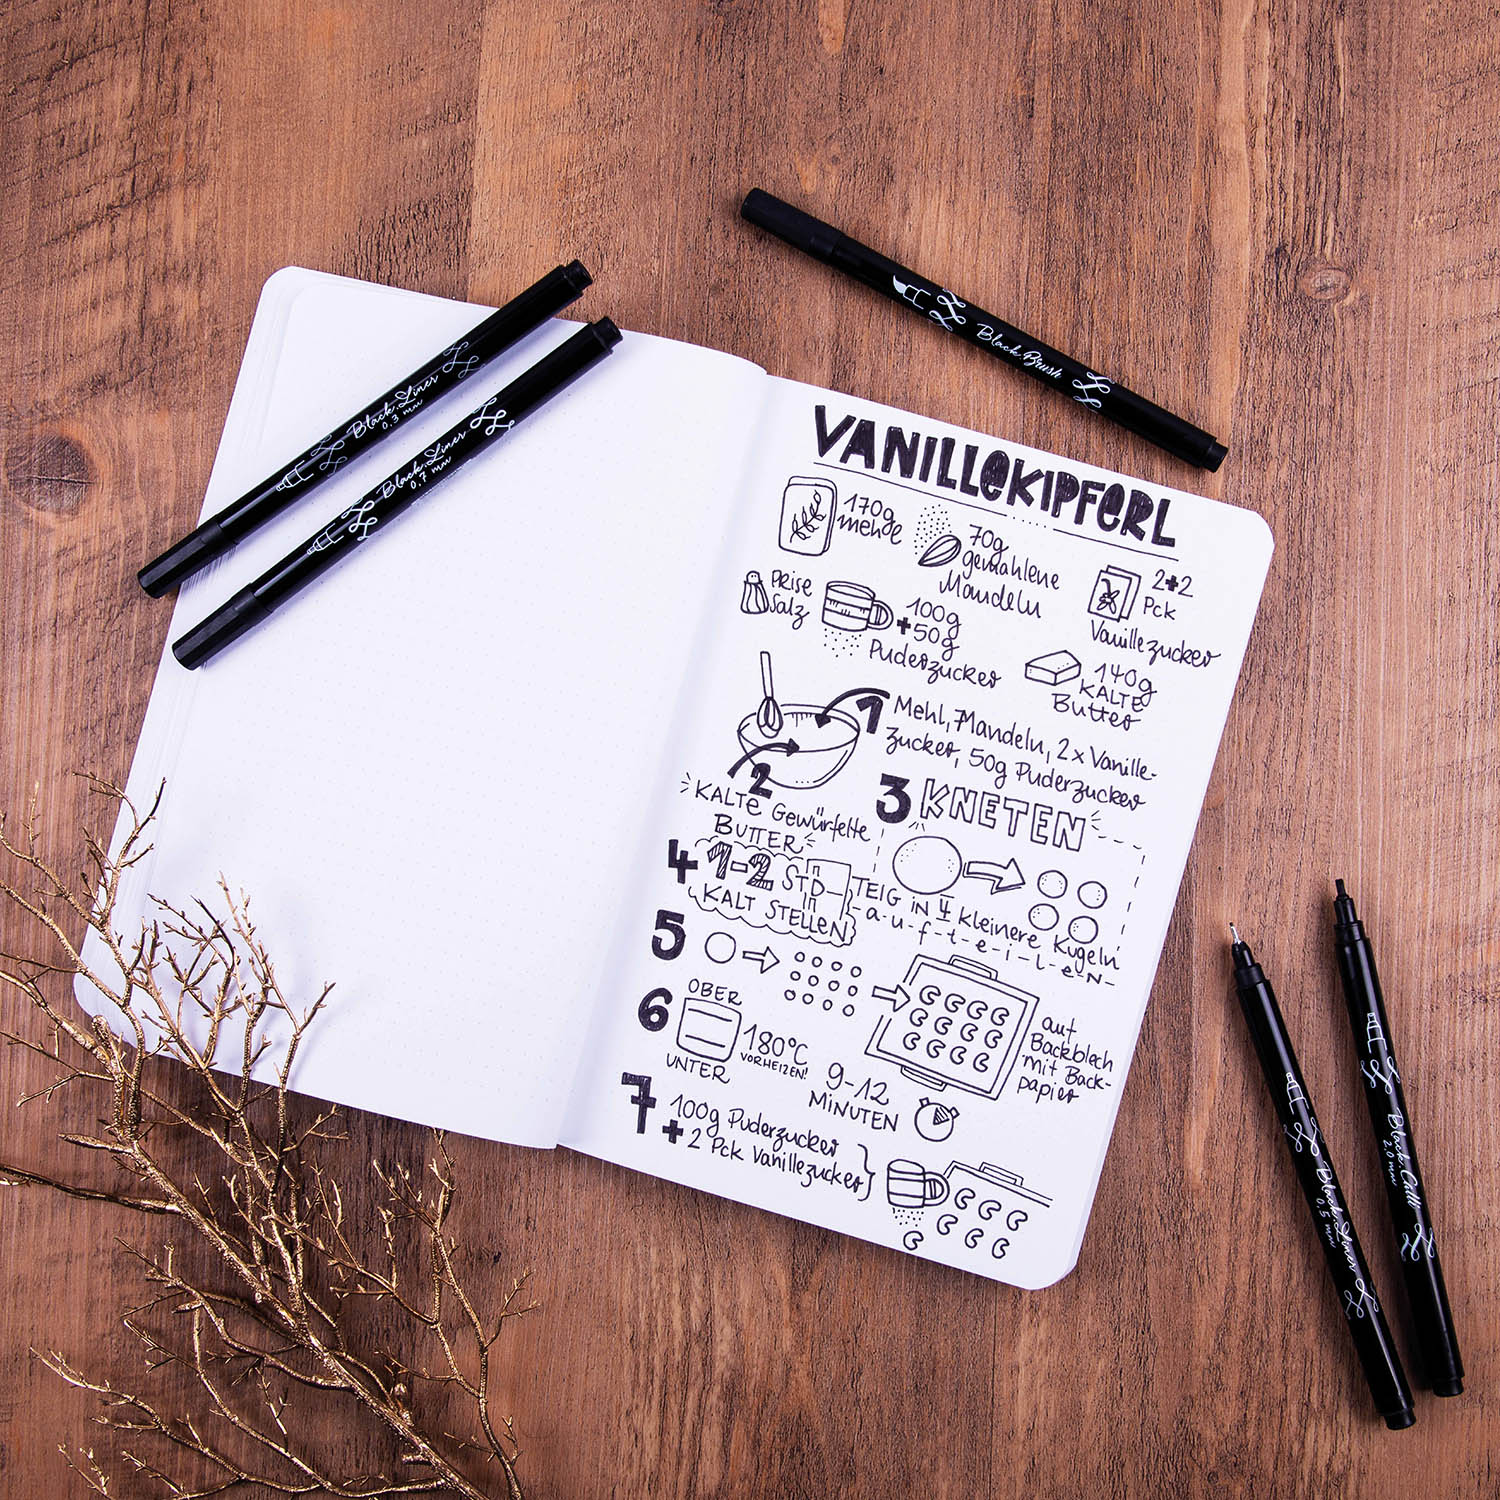 Black.Liner
0.3 mm
Black.Liner
0.7 mm
Black.Brush
VANILLEKIPFERL
170g
mehe
70g
gemahlene
Mandeln
2+2
Pck
Vanillezucker
PRISE
Salz
100g
+50g
Puderzucker
140g
KALTE
Butter
1 Mehl, Mandeln, 2x Vanille-
zucker, 50g Puderzucker
2
KALTE Gewürfelte
BUTTER
3 KNETEN
4 1-2 STD
KALT STELLEN
TEIG IN 4 kleinere Kugeln
a-u-f-t-e-i-l-e-N
5
auf
Backblech
mit Back-
papier
6
OBER
UNTER
180°C
VORHEIZEN!
9-12
MINUTEN
7 100g Puderzucker
+ 2 Pck Vanillezucker
Black.Liner
0.5 mm
Black.Calli
2.0 mm